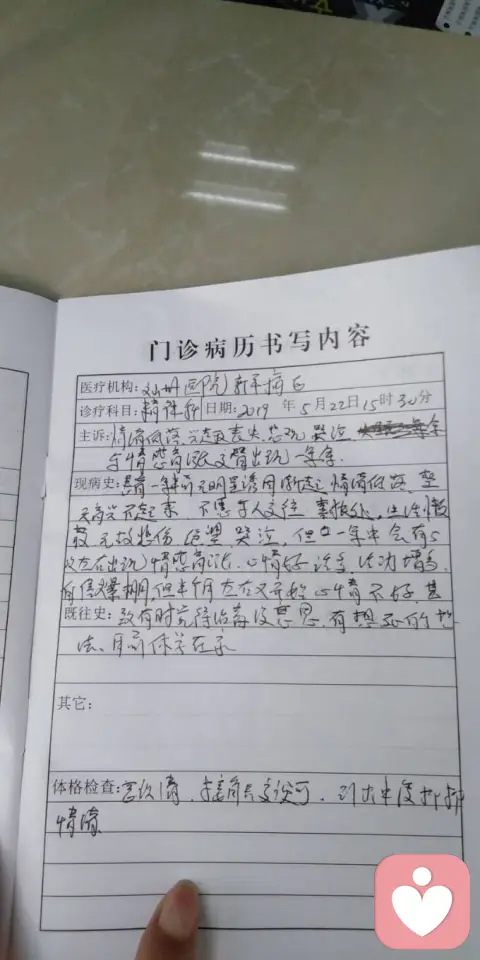 门诊病历书写内容
医疗机构: 医院
诊疗科目: 精神科 日期: 2019 年 5 月 22 日 15 时 30 分
主诉: 情绪低落、兴趣丧失、悲观、哭泣
与情感高涨交替出现一年余.
现病史: 患者一年前无明显诱因渐起情绪低落, 整
天高兴不起来, 不愿与人交往, 生活懒
散 无故悲伤 绝望 哭泣, 但在一年中会有
次左右出现情感高涨, 心情好 活动增多,
但半个月左右又开始心情不好, 甚
既往史: 至有时觉得活着没意思, 有想死的想
法、目前休学在家
其它:
体格检查: 意识清, 接触交谈可, 中度抑郁
情绪